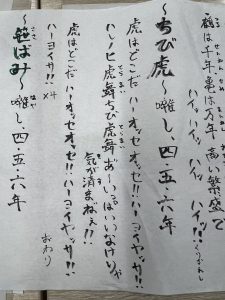 鶴は千年、亀は万年 高い繁盛で
ハイッ ハイッ ハイッ!!
～ちび虎～ 囃し、四・五・六年
虎はどこだ ハーオッセオッセ!! ハーヨイヤッサ!!
ハレノヒ虎舞ちび虎舞 あ～い いなけりゃ
気が済まねぇ!!
虎はどこだ ハーオッセオッセ!! ハーヨイヤッサ!!
ハーヨイサ!! ×4
～笹ばみ～ 囃し、四・五・六年
おわり